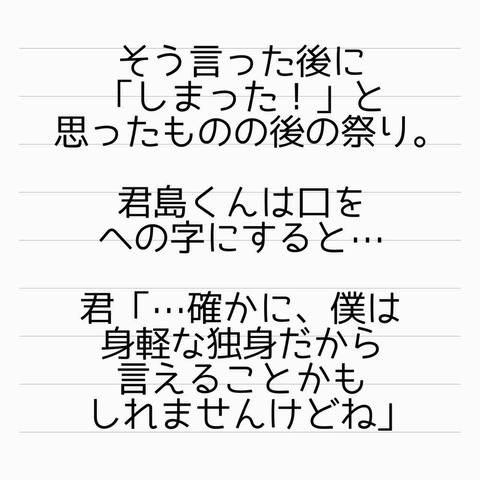 そう言った後に
「しまった！」と
思ったものの後の祭り。
君島くんは口を
への字にすると…
君「…確かに、僕は
身軽な独身だから
言えることかも
しれませんけどね」